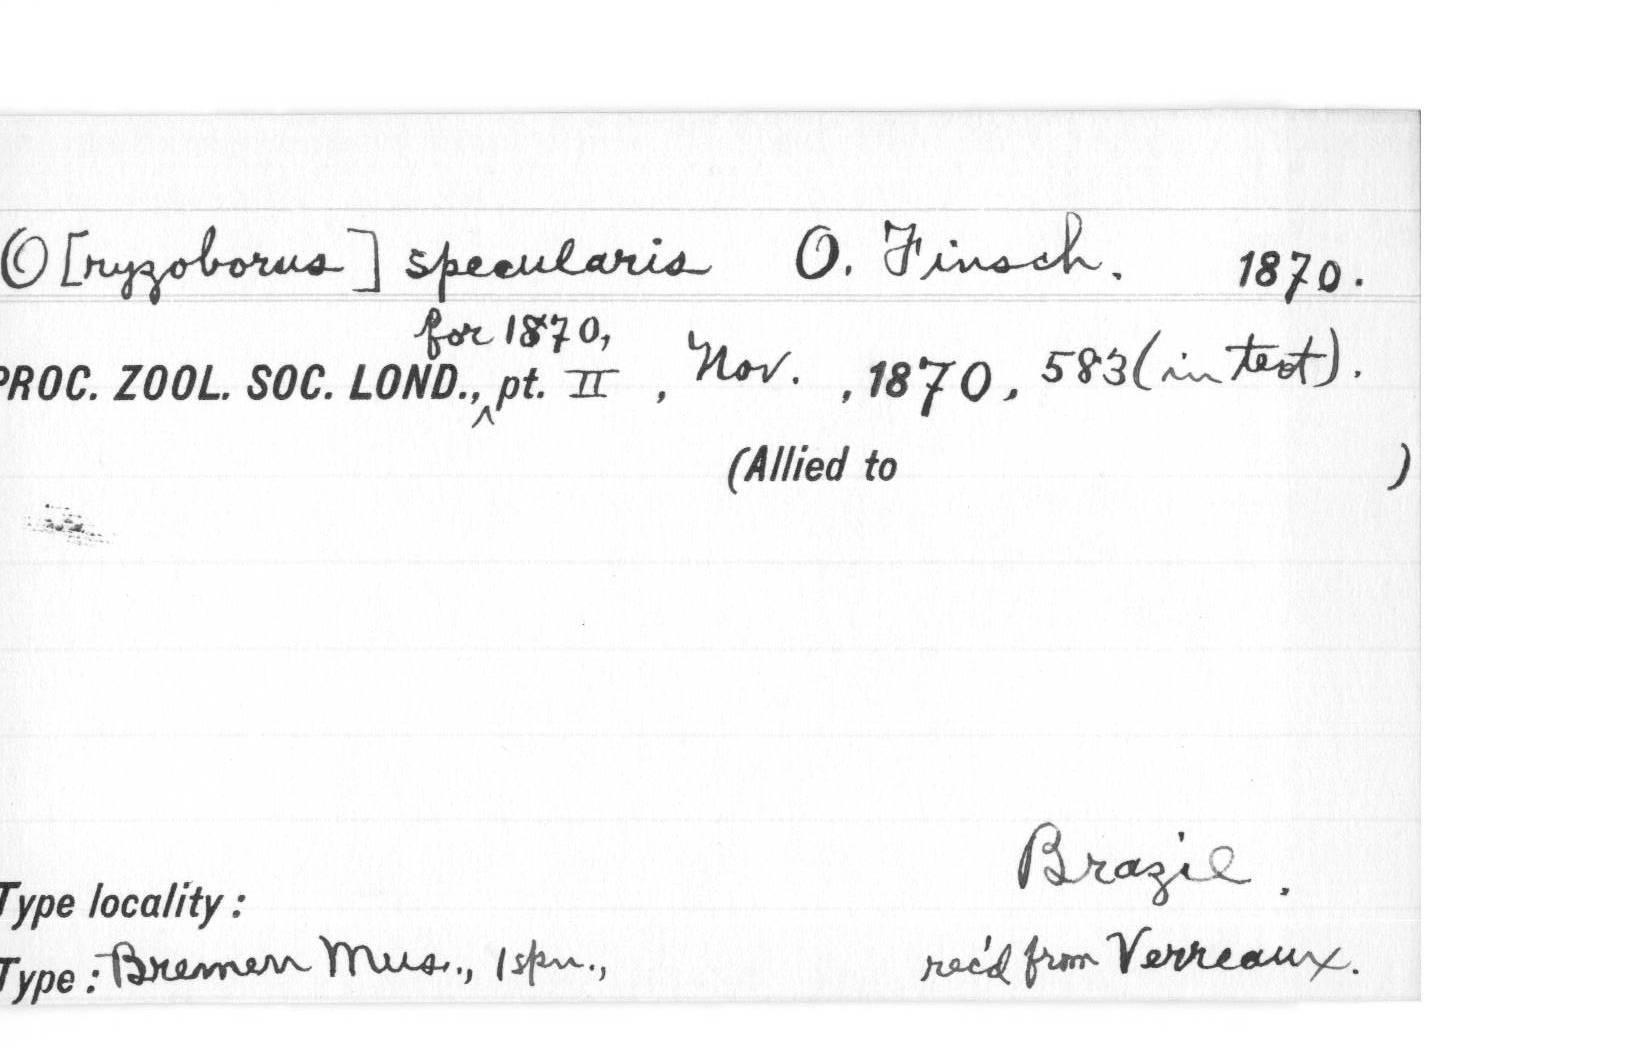 O[ryzoborus] specularis O. Finsch. 1870.
for 1870,
PROC. ZOOL. SOC. LOND., ^ pt. II , Nov. , 1870, 583 (in text).
(Allied to )
Type locality: Brazil.
Type: Bremen Mus., 1 spn., rec'd from Verreaux.